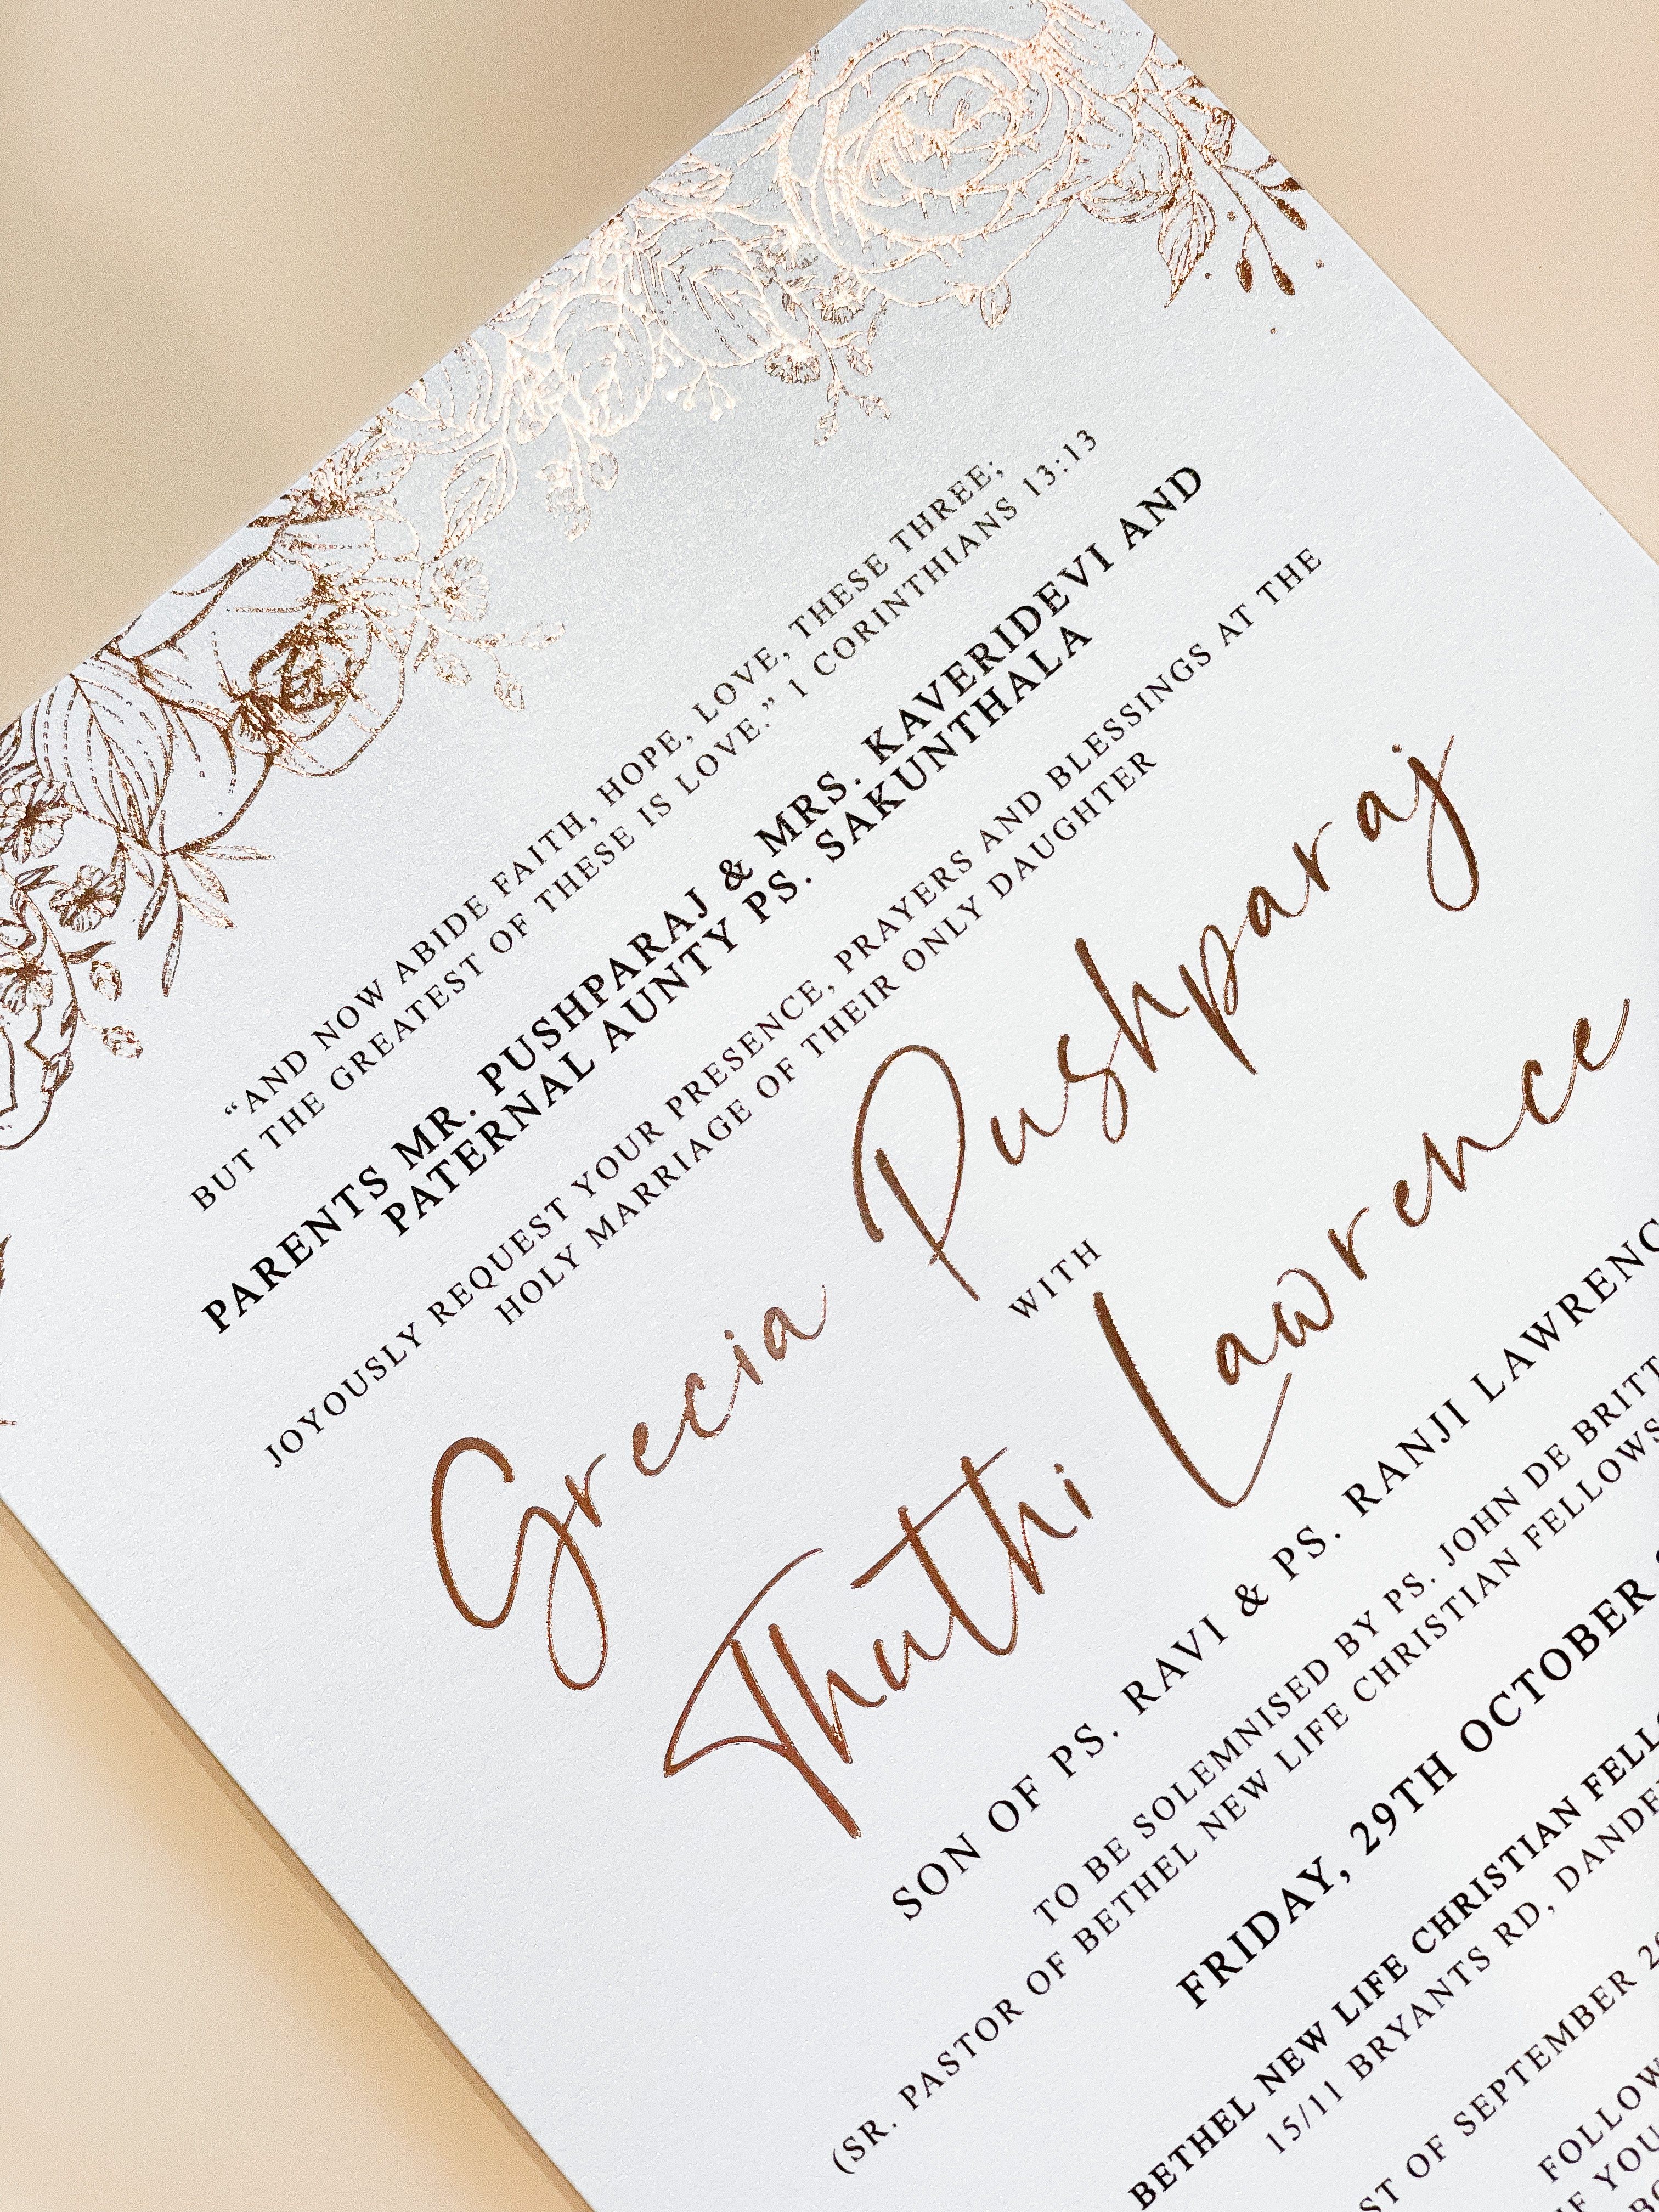 “AND NOW ABIDE FAITH, HOPE, LOVE, THESE THREE;
BUT THE GREATEST OF THESE IS LOVE.” 1 CORINTHIANS 13:13
PARENTS MR. PUSHPARAJ & MRS. KAVERIDEVI AND
PATERNAL AUNTY PS. SAKUNTHALA
JOYOUSLY REQUEST YOUR PRESENCE, PRAYERS AND BLESSINGS AT THE
HOLY MARRIAGE OF THEIR ONLY DAUGHTER
Grecia Pushparaj
WITH
Thuthi Lawrence
SON OF PS. RAVI & PS. RANJI LAWRENC
TO BE SOLEMNISED BY PS. JOHN DE BRITT
(SR. PASTOR OF BETHEL NEW LIFE CHRISTIAN FELLOWS
FRIDAY, 29TH OCTOBER
BETHEL NEW LIFE CHRISTIAN FELL
15/11 BRYANTS RD, DANDE
ST OF SEPTEMBER
FOLLOW
IF YOU